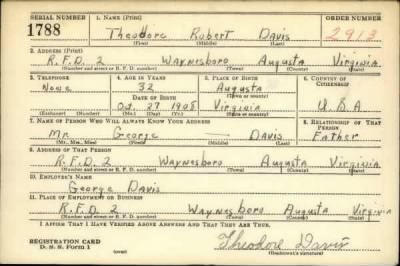 SERIAL NUMBER 1. NAME (Print) ORDER NUMBER
1788 Theodore Robert Davis 2913
(First) (Middle) (Last)
2. ADDRESS (Print)
R.F.D. 2 Waynesboro Augusta Virginia
(Number and street or R. F. D. number) (Town) (County) (State)
3. TELEPHONE 4. AGE IN YEARS 5. PLACE OF BIRTH 6. COUNTRY OF CITIZENSHIP
None 32 Augusta
DATE OF BIRTH (Town or county)
Oct. 27 1908 Virginia U S A
(Exchange) (Number) (Mo.) (Day) (Yr.) (State or country)
7. NAME OF PERSON WHO WILL ALWAYS KNOW YOUR ADDRESS 8. RELATIONSHIP OF THAT PERSON
Mr. George Davis Father
(Mr., Mrs., Miss) (First) (Middle) (Last)
9. ADDRESS OF THAT PERSON
R.F.D. 2 Waynesboro Augusta Virginia
(Number and street or R. F. D. number) (Town) (County) (State)
10. EMPLOYER'S NAME
George Davis
11. PLACE OF EMPLOYMENT OR BUSINESS
R.F.D. 2 Waynesboro Augusta Virginia
(Number and street or R. F. D. number) (Town) (County) (State)
I AFFIRM THAT I HAVE VERIFIED ABOVE ANSWERS AND THAT THEY ARE TRUE.
REGISTRATION CARD
D. S. S. Form 1 (over) Theodore Davis
(Registrant's signature)